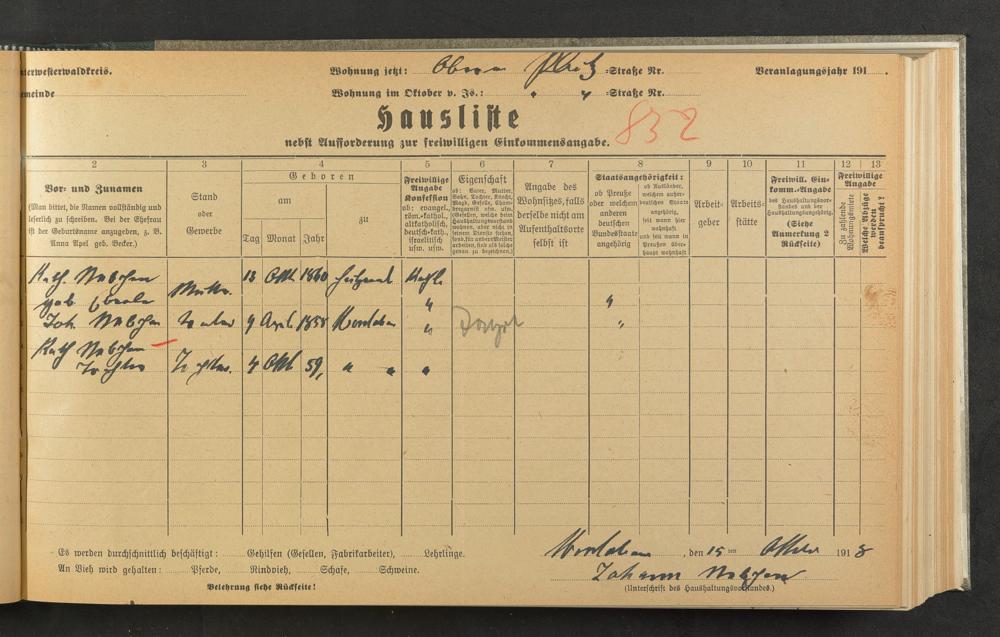 nterwesterwaldkreis.
Wohnung jetzt: Oberer -Straße Nr.
Veranlagungsjahr 191 .
emeinde
Wohnung im Oktober v. Js.: " " -Straße Nr.
Hausliste
832
nebst Aufforderung zur freiwilligen Einkommensangabe.
2 3 4 5 6 7 8 9 10 11 12 13
Vor- und Zunamen
(Man bittet, die Namen vollständig und
leserlich zu schreiben. Bei der Ehefrau
ist der Geburtsname anzugeben, z. B.
Anna Apel geb. Becker.)
Stand
oder
Gewerbe
Geboren
am
Tag Monat Jahr
zu
Freiwillige
Angabe
Konfession
ob: evangel.,
röm.-kathol.,
altkatholisch,
deutsch-kath.,
israelitisch
usw. usw.
Eigenschaft
ob: Vater, Mutter,
Sohn, Tochter, Knecht,
Magd, Geselle, Cham-
bregarnist usw. usw.
(Gesellen, welche beim
Haushaltungsvorstand
wohnen, aber nicht in
seinen Diensten stehen,
sond. für andere Meister
arbeiten, sind als solche
genau zu bezeichnen.)
Angabe des
Wohnsitzes, falls
derselbe nicht am
Aufenthaltsorte
selbst ist
Staatsangehörigkeit:
ob Preuße
oder welchem
anderen
deutschen
Bundesstaate
angehörig
ob Ausländer,
welchem außer-
deutschen Staate
angehörig,
seit wann hier
wohnhaft
und seit wann in
Preußen über-
haupt wohnhaft
Arbeit-
geber
Arbeits-
stätte
Freiwill. Ein-
komm.-Angabe
des Haushaltungsvor-
standes und der
Haushaltungsangehörig.
(Siehe
Anmerkung 2
Rückseite)
Freiwillige
Angabe
Zu zahlende
Wohnungsmiete
Welche Abzüge
werden
beansprucht?
Kath. 13 Okt 1860 Kath.
geb. " "
Joh. 9 April 1858 " "
Kath
Tochter 4 Okt 59, " " "
Es werden durchschnittlich beschäftigt: Gehilfen (Gesellen, Fabrikarbeiter), Lehrlinge.
An Vieh wird gehalten: Pferde, Rindvieh, Schafe, Schweine.
Belehrung siehe Rückseite!
, den 15 ten Oktober 191 8
Johann
(Unterschrift des Haushaltungsvorstandes.)